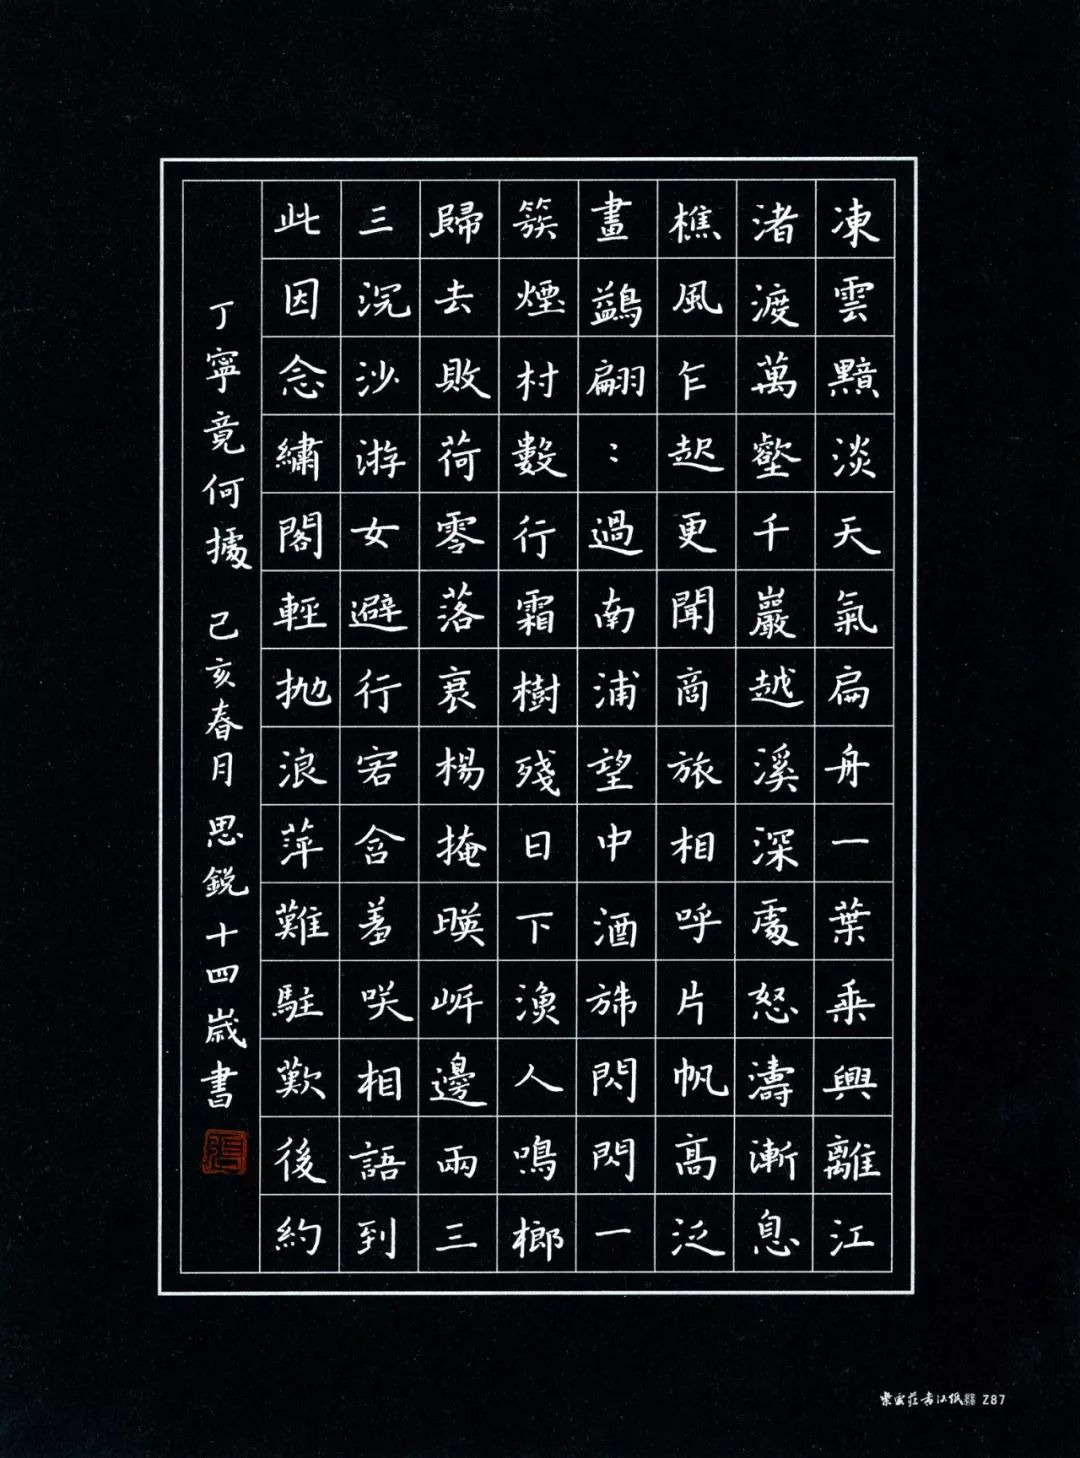 凍雲黯淡天氣扁舟一葉乘興離江
渚渡萬壑千巖越溪深處怒濤漸息
樵風乍起更聞商旅相呼片帆高泛
畫鷁翩：過南浦望中酒旆閃閃一
簇煙村數行霜樹殘日下漁人鳴榔
歸去敗荷零落衰楊掩暎岍邊兩三
三沉沙游女避行客含羞咲相語到
此因念繡閣輕拋浪萍難駐歎後約
丁寧竟何據 己亥春月 思銳十四歲書
張
紫雲莊書法紙 Z87